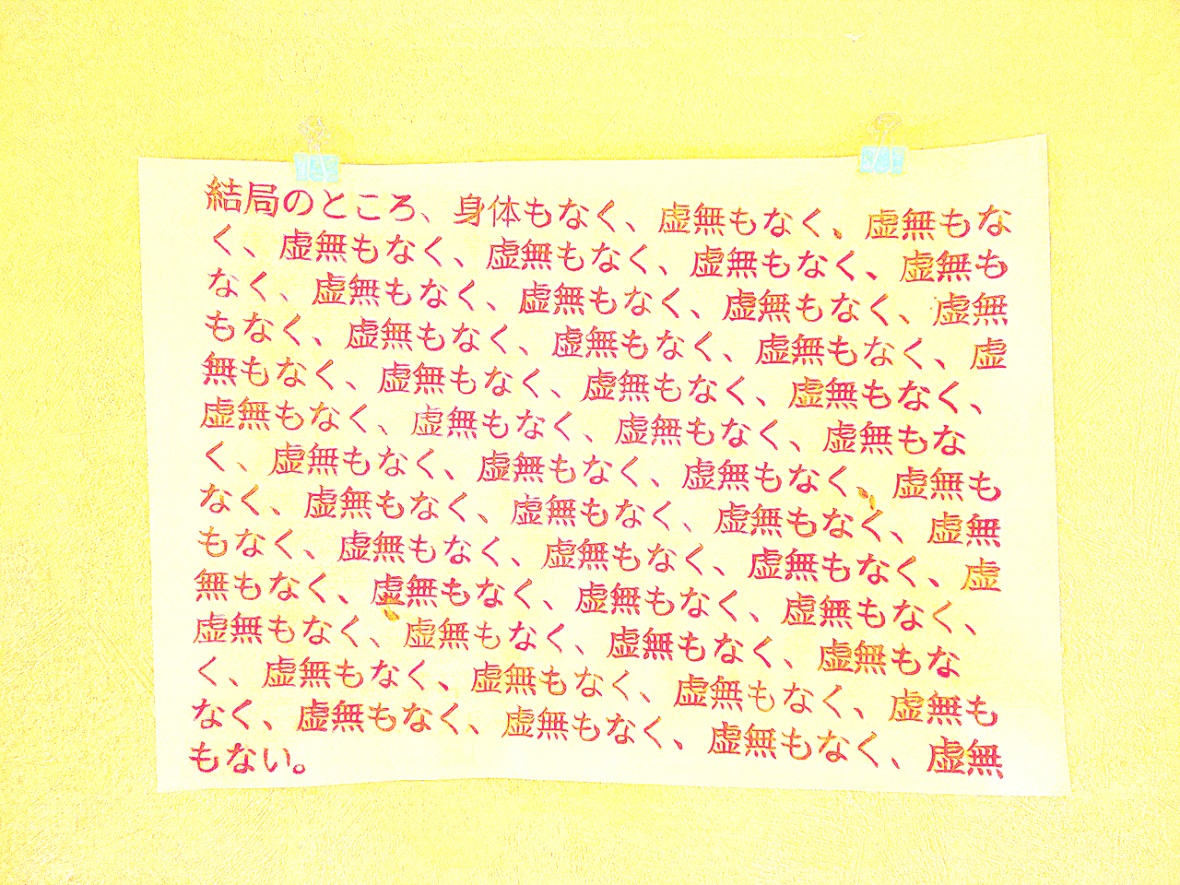 結局のところ、身体もなく、虚無もなく、虚無もな
く、虚無もなく、虚無もなく、虚無もなく、虚無も
なく、虚無もなく、虚無もなく、虚無もなく、虚無
もなく、虚無もなく、虚無もなく、虚無もなく、虚
無もなく、虚無もなく、虚無もなく、虚無もなく、
虚無もなく、虚無もなく、虚無もなく、虚無もな
く、虚無もなく、虚無もなく、虚無もなく、虚無も
なく、虚無もなく、虚無もなく、虚無もなく、虚無
もなく、虚無もなく、虚無もなく、虚無もなく、虚
無もなく、虚無もなく、虚無もなく、虚無もなく、
虚無もなく、虚無もなく、虚無もなく、虚無もな
く、虚無もなく、虚無もなく、虚無もなく、虚無も
なく、虚無もなく、虚無もなく、虚無もなく、虚無
もない。